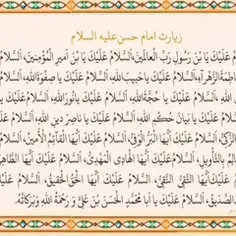 زیارت امام حسن علیه السلام
عَلَيْكَ يَا بْنَ رَسُولِ رَبِّ الْعَالَمِينَ، اَلسَّلامُ عَلَيْكَ يَا بْنَ اَمِيرِ الْمُؤْمِنِينَ، اَلسَّلامُ
فاطِمَةَ الزَّهْراءِ، اَلسَّلامُ عَلَيْكَ ياحَبِيبَ اللهِ، اَلسَّلامُ عَلَيْكَ يا صِفْوَةَ اللهِ، اَلسَّلامُ
اللهِ، اَلسَّلامُ عَلَيْكَ يا حُجَّةَ اللهِ، اَلسَّلامُ عَلَيْكَ يانُورَ اللهِ، اَلسَّلامُ عَلَيْكَ يا
عَلَيْكَ يا بَيانَ حُكْمِ اللهِ، اَلسَّلامُ عَلَيْكَ يا ناصِرَ دِينِ اللهِ، اَلسَّلامُ عَلَيْكَ
الزَّكِيُّ، اَلسَّلامُ عَلَيْكَ اَيُّهَا الْبَرُّ الْوَفِيُّ، اَلسَّلامُ عَلَيْكَ اَيُّهَا الْقائِمُ الْاَمِينُ، اَلسَّلامُ
بِالتَّأْوِيلِ، اَلسَّلامُ عَلَيْكَ اَيُّهَا الْهادِي الْمَهْدِيُّ، اَلسَّلامُ عَلَيْكَ اَيُّهَا الطّاهِرُ
عَلَيْكَ اَيُّهَا التَّقِيُّ النَّقِيُّ، اَلسَّلامُ عَلَيْكَ اَيُّهَا الْحَقُّ الْحَقِيقُ، اَلسَّلامُ عَلَيْكَ
الصِّدِّيقُ، اَلسَّلامُ عَلَيْكَ يا اَبا مُحَمَّدٍ الْحَسَنَ بْنَ عَلِيٍّ وَ رَحْمَةُ اللهِ وَ بَرَكاتُهُ.